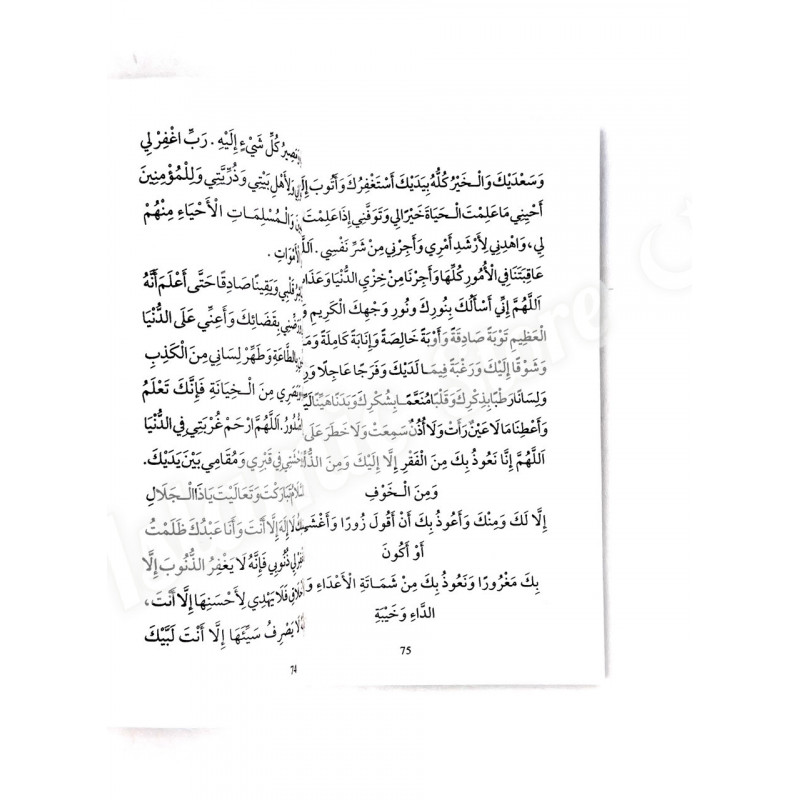 تَصِيرُ كُلُّ شَيْءٍ إِلَيْهِ . رَبِّ اغْفِرْ لِي
وَلِأَهْلِ بَيْتِي وَذُرِّيَّتِي وَلِلْمُؤْمِنِينَ
وَالْمُسْلِمَاتِ الْأَحْيَاءِ مِنْهُمْ
الْأَمْوَاتِ .
قَلْبِي وَيَقِينًا صَادِقًا حَتَّى أَعْلَمَ أَنَّهُ
بِقَضَائِكَ وَأَعِنِّي عَلَى الدُّنْيَا
بِالطَّاعَةِ وَطَهِّرْ لِسَانِي مِنَ الْكَذِبِ
مِنَ الْخِيَانَةِ فَإِنَّكَ تَعْلَمُ
الصُّدُورُ. اللَّهُمَّ ارْحَمْ غُرْبَتِي فِي الدُّنْيَا
فِي قَبْرِي وَمَقَامِي بَيْنَ يَدَيْكَ.
تَبَارَكْتَ وَتَعَالَيْتَ يَاذَا الْجَلَالِ
لَا إِلَهَ إِلَّا أَنْتَ وَأَنَا عَبْدُكَ ظَلَمْتُ
لِي ذُنُوبِي فَإِنَّهُ لَا يَغْفِرُ الذُّنُوبَ إِلَّا
فَلَا يَهْدِي لِأَحْسَنِهَا إِلَّا أَنْتَ ،
لَا يَصْرِفُ سَيِّئَهَا إِلَّا أَنْتَ لَبَّيْكَ
74
وَسَعْدَيْكَ وَالْخَيْرُ كُلُّهُ بِيَدَيْكَ أَسْتَغْفِرُكَ وَأَتُوبُ
أَحْيِنِي مَا عَلِمْتَ الْحَيَاةَ خَيْرًا لِي وَتَوَفَّنِي إِذَا عَلِمْتَ
لِي ، وَاهْدِنِي لِأَرْشَدِ أَمْرِي وَأَجِرْنِي مِنْ شَرِّ نَفْسِي .
عَاقِبَتَنَا فِي الْأُمُورِ كُلِّهَا وَأَجِرْنَا مِنْ خِزْيِ الدُّنْيَا
اَللَّهُمَّ إِنِّي أَسْأَلُكَ بِنُورِكَ وَنُورِ وَجْهِكَ الْكَرِيمِ
الْعَظِيمِ تَوْبَةً صَادِقَةً وَأَوْبَةً خَالِصَةً وَإِنَابَةً كَامِلَةً
وَشَوْقًا إِلَيْكَ وَرَغْبَةً فِيمَا لَدَيْكَ وَفَرَجًا عَاجِلًا
وَلِسَانًا رَطْبًا بِذِكْرِكَ وَقَلْبًا مُنَعَّمًا بِشُكْرِكَ وَبَدَنًا هَيِّنًا
وَأَعْطِنَا مَا لَا عَيْنٌ رَأَتْ وَلَا أُذُنٌ سَمِعَتْ وَلَا خَطَرَ عَلَى
اَللَّهُمَّ إِنَّا نَعُوذُ بِكَ مِنَ الْفَقْرِ إِلَّا إِلَيْكَ وَمِنَ
وَمِنَ الْخَوْفِ
إِلَّا لَكَ وَمِنْكَ وَأَعُوذُ بِكَ أَنْ أَقُولَ زُورًا
أَوْ أَكُونَ
بِكَ مَغْرُورًا وَنَعُوذُ بِكَ مِنْ شَمَاتَةِ الْأَعْدَاءِ
الدَّاءِ وَخَيْبَةِ
75